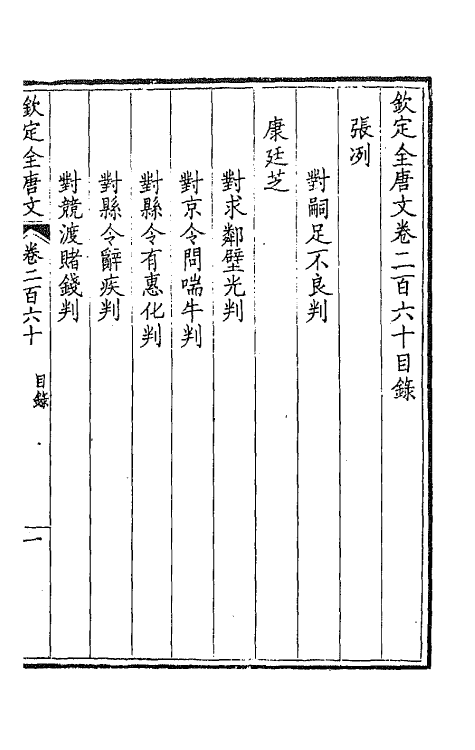 欽定全唐文卷二百六十目錄
張冽
對嗣足不良判
康廷芝
對求鄰壁光判
對京令問喘牛判
對縣令有惠化判
對縣令辭疾判
對競渡賭錢判
欽定全唐文
卷二百六十
目錄
一